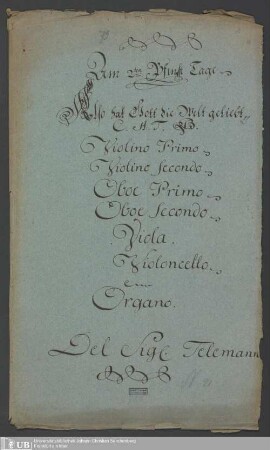 Am 2ten Pfingst Tage
Also hat Gott die Welt geliebt
C. A. T. B.
Violino Primo
Violino Secondo
Oboe Primo
Oboe Secondo
Viola,
Violoncello
Organo.
Del Sigr Telemann
UB